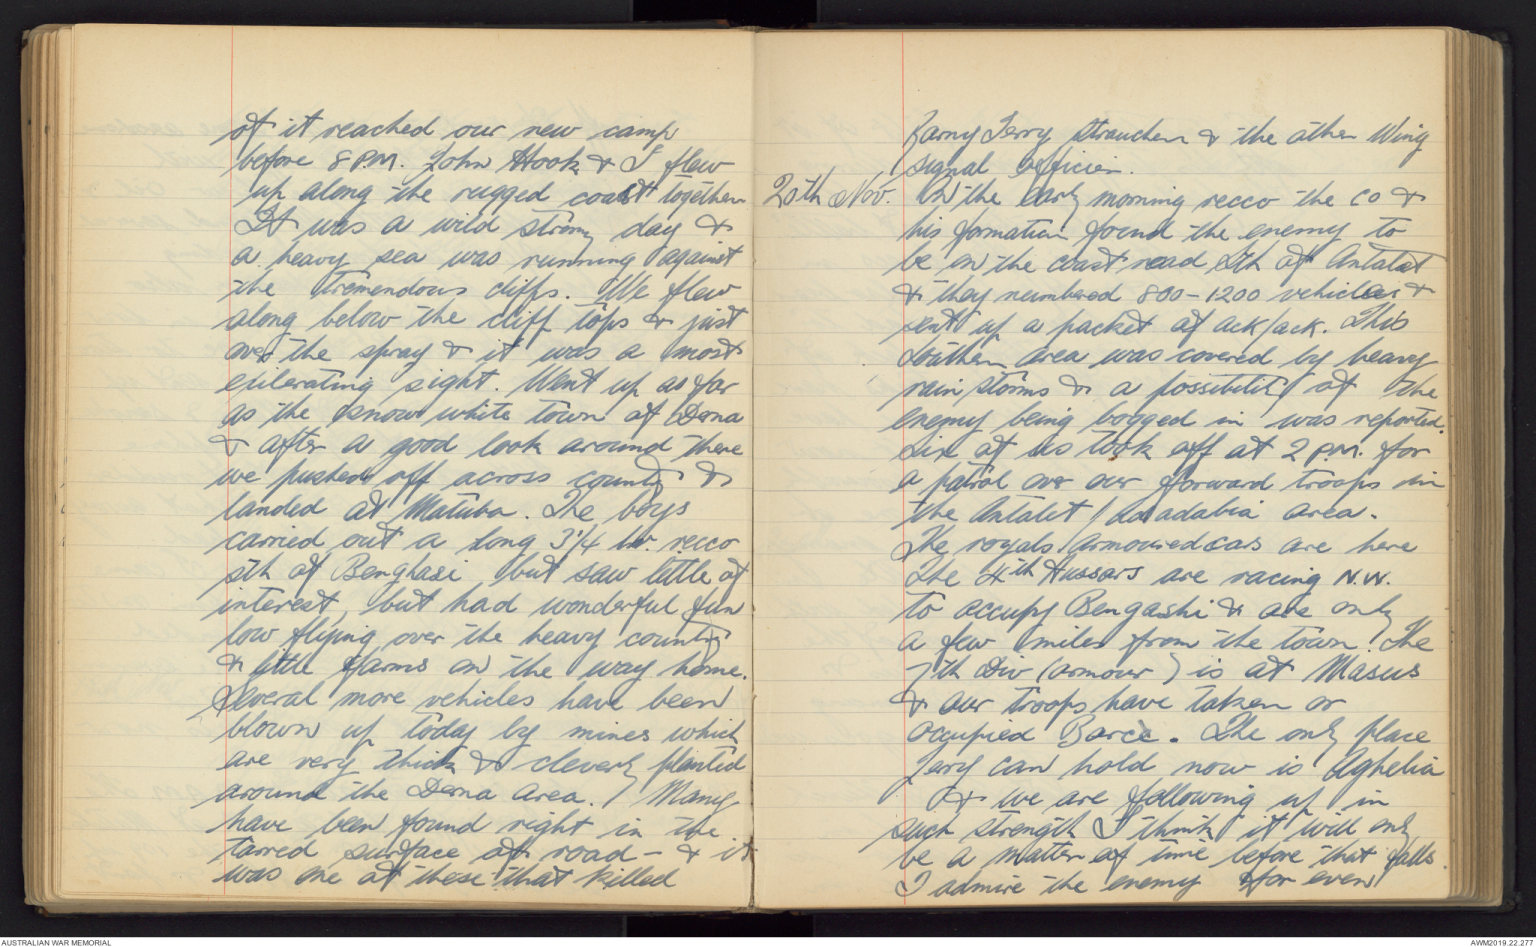 of it reached our new camp
before 8 PM. John Hook & I flew
up along the rugged coast together
It was a wild stormy day &
a heavy sea was running against
the tremendous cliffs. We flew
along below the cliff tops & just
over the spray & it was a most
exilerating sight. Went up as far
as the snow white town of Derna
& after a good look around there
we pushed off across country &
landed at Matuba. The boys
carried out a long 3 1/4 hr. recco
sth of Benghasi but saw little of
interest, but had wonderful fun
low flying over the heavy country
& little farms on the way home.
Several more vehicles have been
blown up today by mines which
are very thick & cleverly planted
around the Derna area. Many
have been found right in the
tarred surface of road - & it
was one of these that killed
Terry Strauchen & the other Wing
signal officier.
20th Nov. On the early morning recco the CO &
his formation found the enemy to
be on the coast road Sth of Antalat
& they numbered 800-1200 vehicles &
sent up a packet of ack/ack. This
Southern area was covered by heavy
rain storms & a possibility of the
enemy being bogged in was reported.
Six of us took off at 2 PM. for
a patrol over our forward troops in
the Antalet / Adadabia area.
The royals armoured cars are here
The 4th Hussars are racing N.W.
to occupy Bengashi & are only
a few miles from the town. The
7th Div (armour) is at Masus
& our troops have taken or
occupied Barce. The only place
Jerry can hold now is Aghelia
& we are following up in
such strength I think it will only
be a matter of time before that falls.
I admire the enemy for even